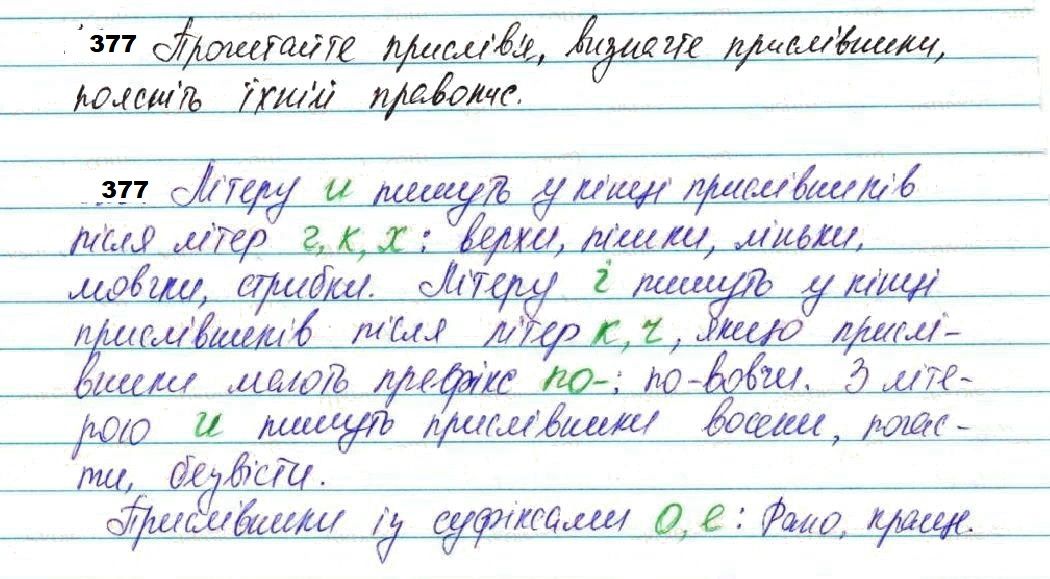 377 Прочитайте прислів'я, визначте прислівники,
поясніть їхній правопис.
377 Літеру и пишуть у кінці прислівників
після літер г, к, х: верхи, пішки, ліньки,
мовчки, стрибки. Літеру і пишуть у кінці
прислівників після літер к, ч, якщо прислі-
вники мають префікс по-: по-вовчи. З літе-
рою и пишуть прислівники восени, почас-
ти, безвісти.
Прислівники із суфіксами о, е: Рано, краще.